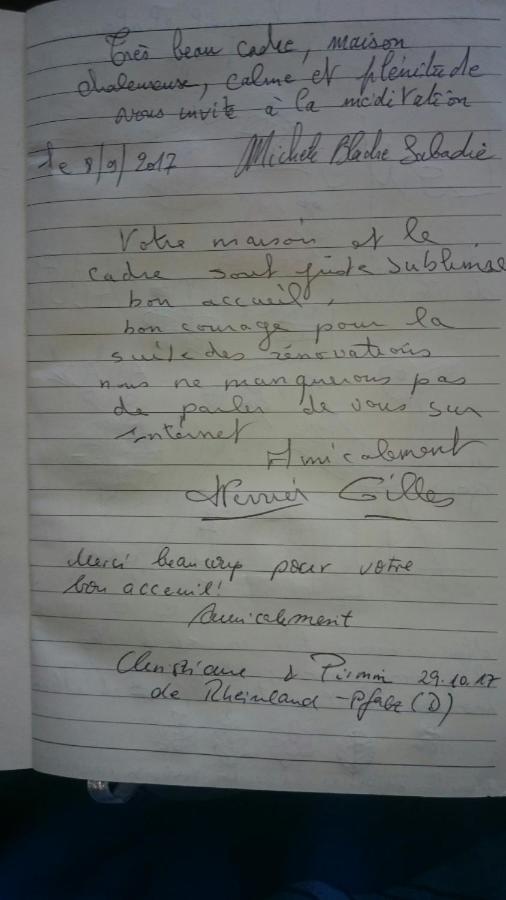 Très beau cadre, maison
chaleureuse, calme et plénitude
vous invite à la méditation
le 8/9/2017 Michèle Sabadie
Votre maison et le
cadre sont juste sublimse
bon accueil,
bon courage pour la
suite des rénovations
nous ne manquerons pas
de parler de vous sur
Internet
Amicalement
Gilles
Merci beaucoup pour votre
bon acceuil!
Amicalement
Christiane & Pirmin 29.10.17
de Rheinland-Pfalz (D)